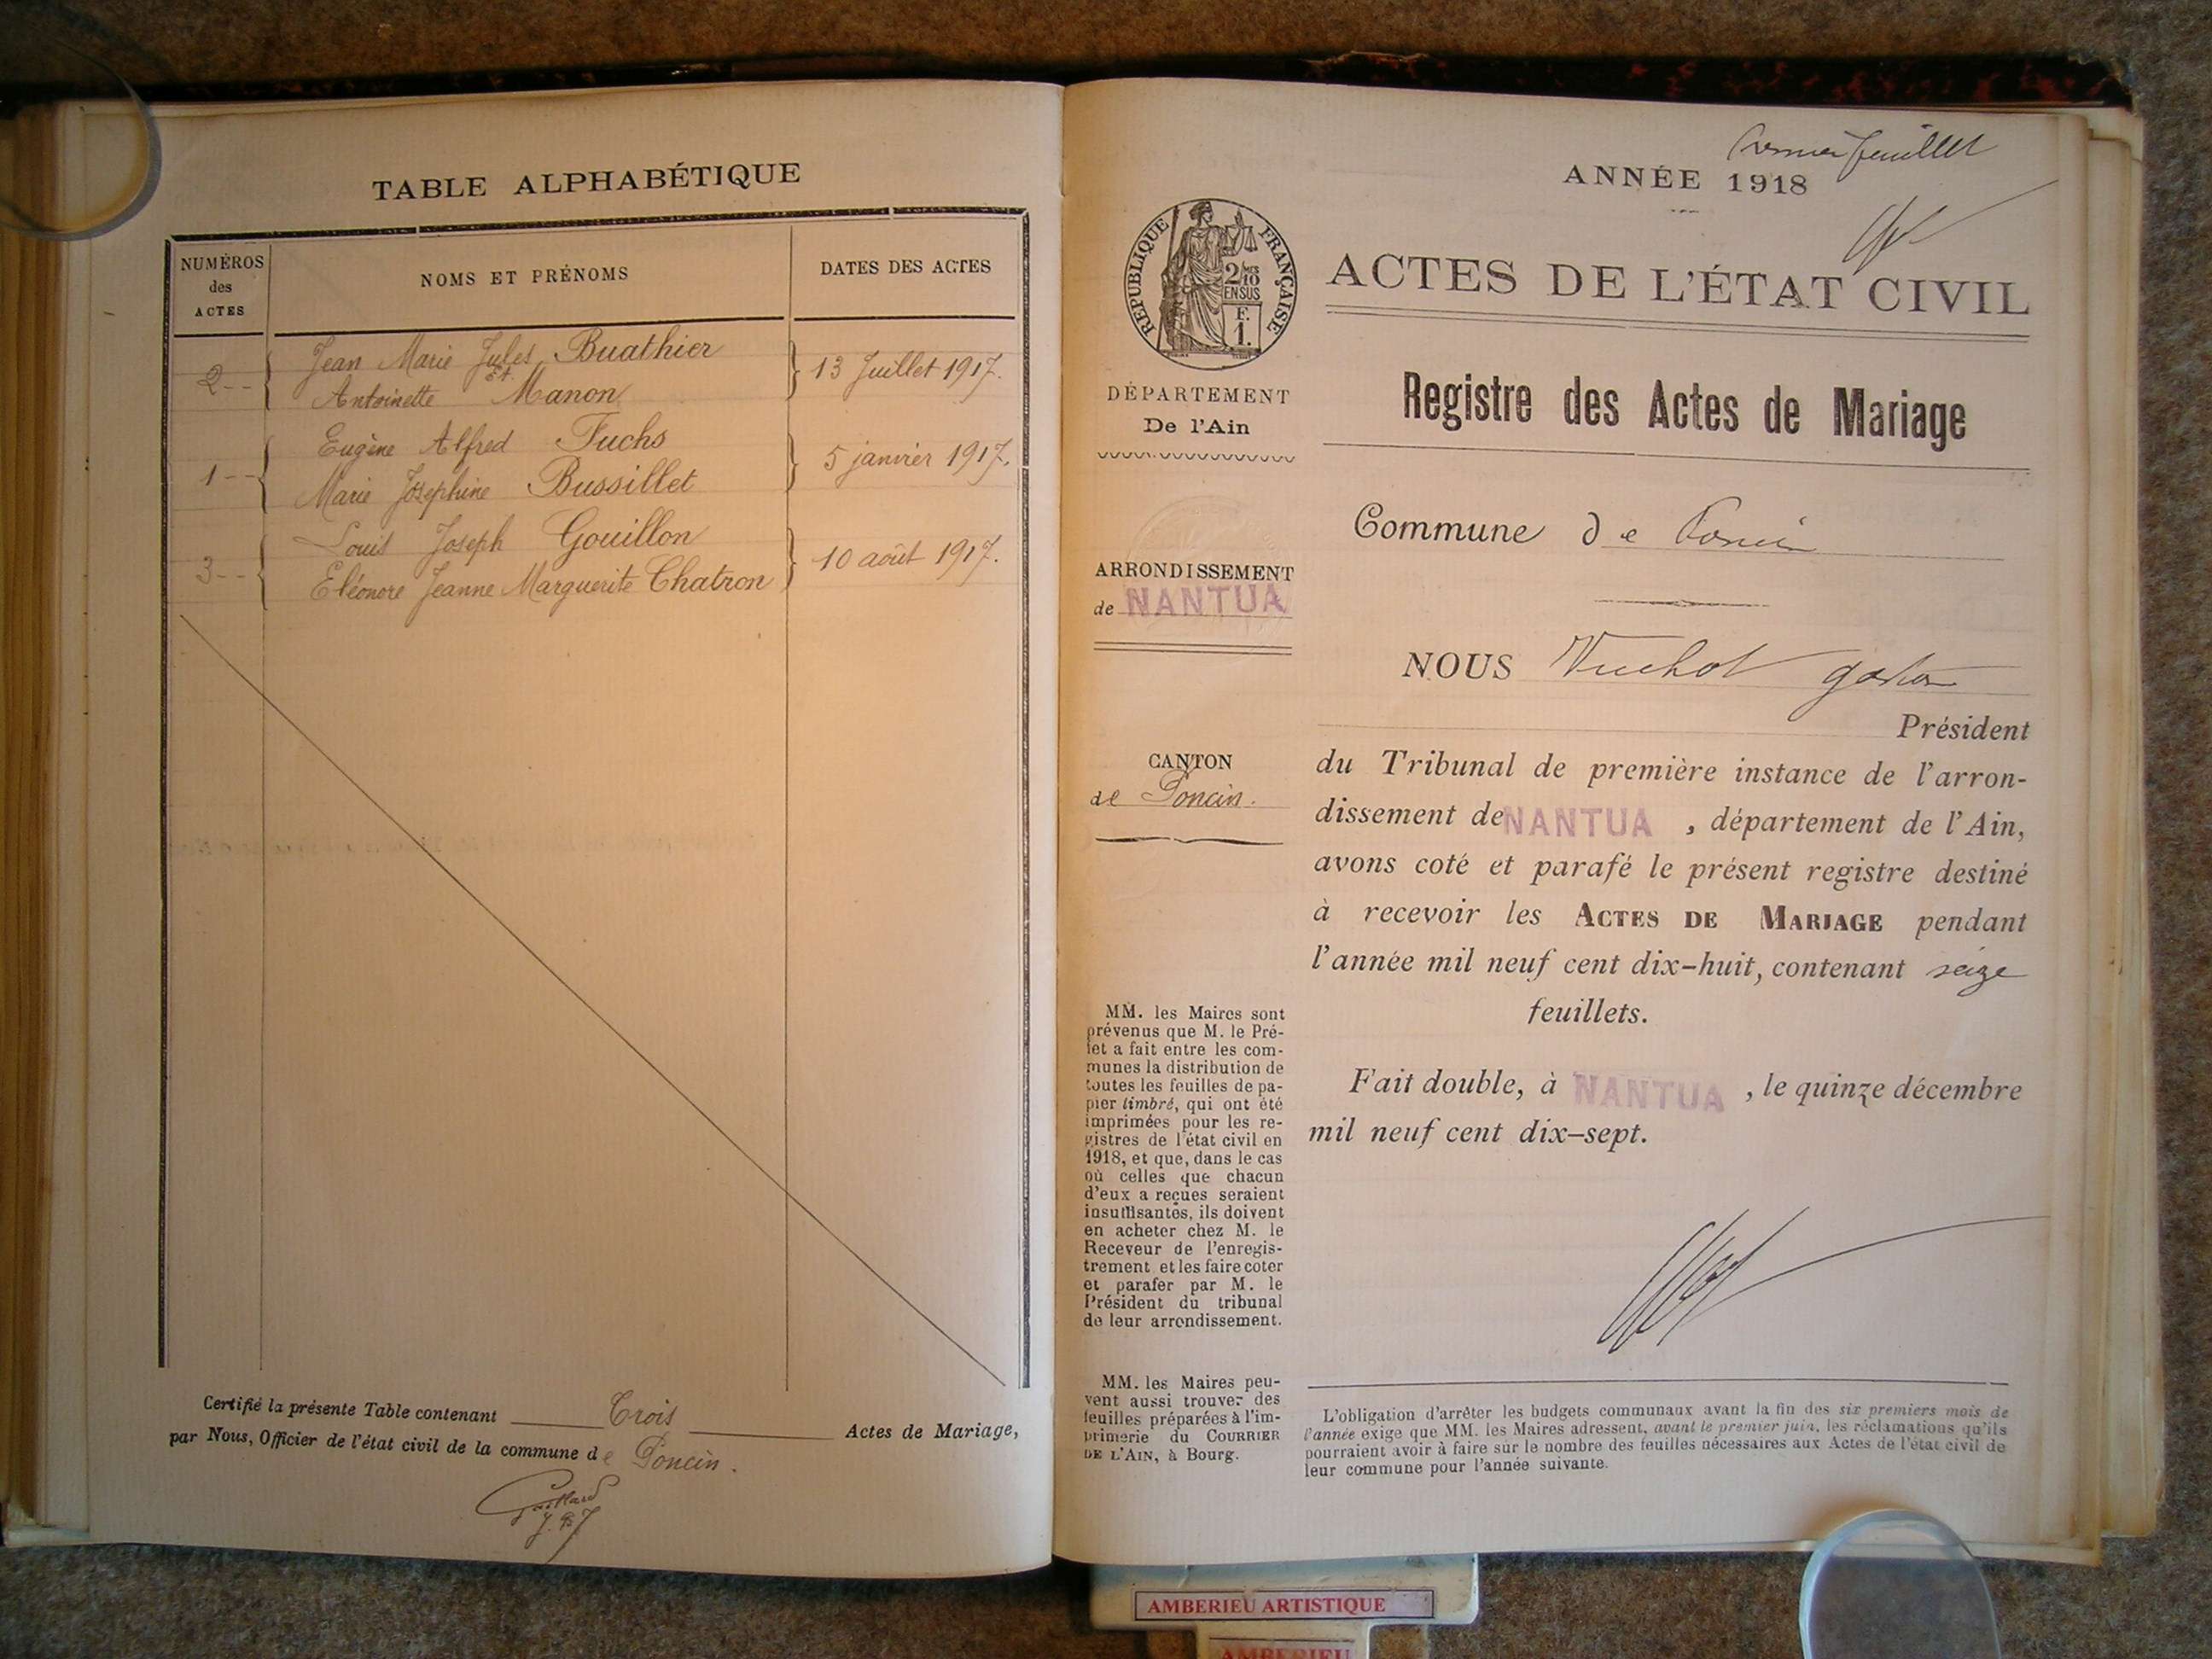 TABLE ALPHABÉTIQUE
NUMÉROS des ACTES
NOMS ET PRÉNOMS
DATES DES ACTES
2-- Jean Marie Jules Buathier
et
Antoinette Manon
13 Juillet 1917.
1-- Eugène Alfred Fuchs
Marie Josephine Bussillet
5 janvier 1917.
3-- Louis Joseph Gouillon
Eléonore Jeanne Marguerite Chatron
10 août 1917.
Certifié la présente Table contenant Trois Actes de Mariage,
par Nous, Officier de l'état civil de la commune de Poncin.
Premier feuillet
ANNÉE 1918
RÉPUBLIQUE FRANÇAISE
2/10
EN SUS
F.
1.
ACTES DE L'ÉTAT CIVIL
DÉPARTEMENT
De l'Ain
Registre des Actes de Mariage
Commune de Poncin
ARRONDISSEMENT
de NANTUA
NOUS Vuchot gaston
Président
CANTON
de Poncin.
du Tribunal de première instance de l'arron-
dissement de NANTUA, département de l'Ain,
avons coté et parafé le présent registre destiné
à recevoir les ACTES DE MARIAGE pendant
l'année mil neuf cent dix-huit, contenant seize
feuillets.
Fait double, à NANTUA, le quinze décembre
mil neuf cent dix-sept.
MM. les Maires sont
prévenus que M. le Pré-
fet a fait entre les com-
munes la distribution de
toutes les feuilles de pa-
pier timbré, qui ont été
imprimées pour les re-
gistres de l'état civil en
1918, et que, dans le cas
où celles que chacun
d'eux a reçues seraient
insuffisantes, ils doivent
en acheter chez M. le
Receveur de l'enregis-
trement et les faire coter
et parafer par M. le
Président du tribunal
de leur arrondissement.
MM. les Maires peu-
vent aussi trouver des
feuilles préparées à l'im-
primerie du COURRIER
DE L'AIN, à Bourg.
L'obligation d'arrêter les budgets communaux avant la fin des six premiers mois de
l'année exige que MM. les Maires adressent, avant le premier juin, les réclamations qu'ils
pourraient avoir à faire sur le nombre des feuilles nécessaires aux Actes de l'état civil de
leur commune pour l'année suivante.
AMBERIEU ARTISTIQUE
AMBERIEU